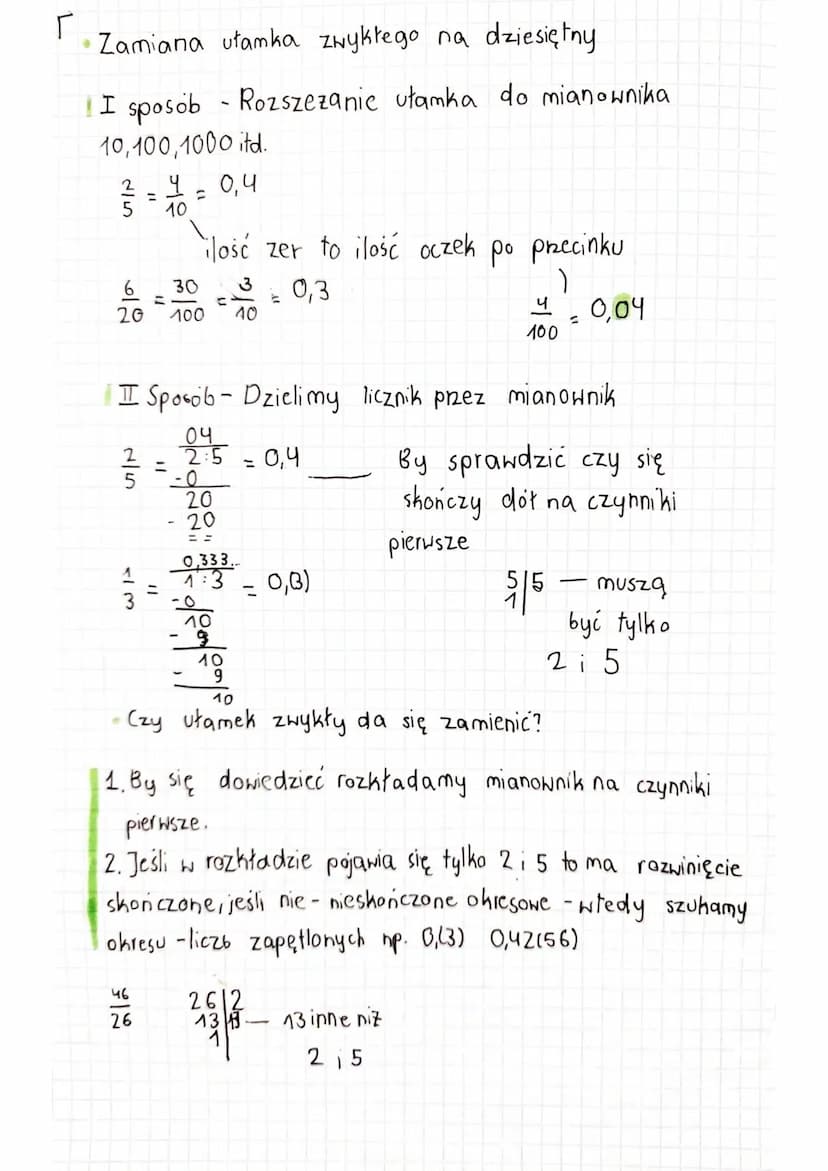 Zamiana ułamka zwykłego na dziesiętny
! I sposób - Rozszezanie ułamka do mianownika
10,100,1000 itd.
2/5 = 4/10 = 0,4
ilość zer to ilość oczek po przecinku
6/20 = 30/100 = 3/10 = 0,3
4/100 = 0,04
! II Sposób - Dzielimy licznik przez mianownik
04
2/5 = 2:5 = 0,4
-0
20
- 20
= =
By sprawdzić czy się
skończy dół na czynniki
pierwsze
0,333..
1/3 = 1:3 = 0,(3)
-0
10
- 9
10
- 9
10
5|5 — muszą
1| być tylko
2 i 5
Czy ułamek zwykły da się zamienić?
1. By się dowiedzieć rozkładamy mianownik na czynniki
pierwsze.
2. Jeśli w rozkładzie pojawia się tylko 2 i 5 to ma rozwinięcie
skończone, jeśli nie - nieskończone okresowe - wtedy szukamy
okresu - liczb zapętlonych np. 0,(3) 0,42(56)
46/26
26|2
13|13 — 13 inne niż
1| 2 i 5